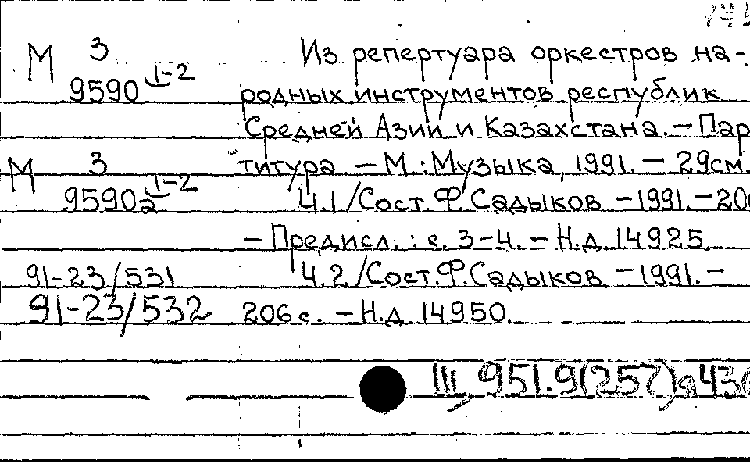 М З 9590 1-2
Из репертуара оркестров на-
родных инструментов республик
Средней Азии и Казахстана. – Пар
титура – М.: Музыка, 1991. – 29см.
М З 9590а 1-2
Ч.1 / Сост. Ф. Садыков – 1991. – 20
– Предисл.: с. 3–4. – Н.д. 14925.
91-23/531
Ч.2 / Сост. Ф. Садыков – 1991. –
91-23/532
206 с. – Н.д. 14950.
III, 951.9(257)